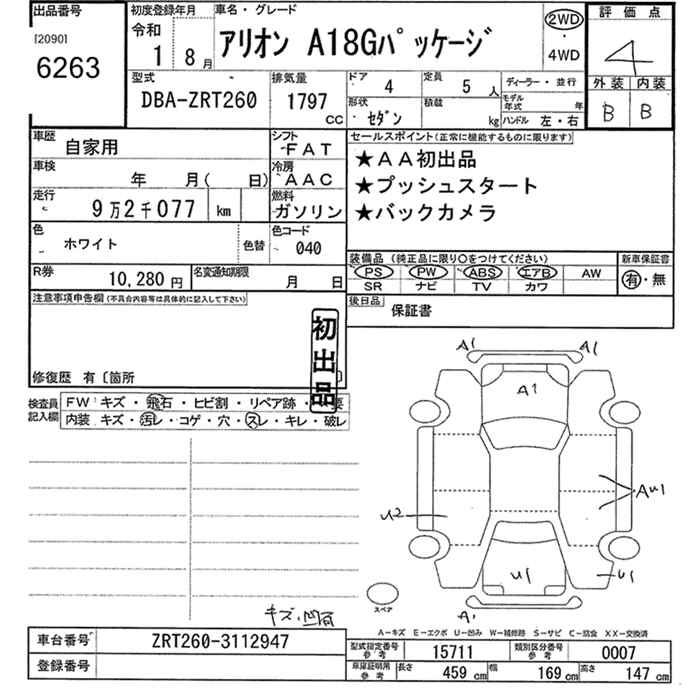 出品番号
[2090]
6263
初度登録年月
令和
1 8月
車名・グレード
アリオン A18Gパッケージ
2WD
・
4WD
評価点
4
外装 内装
B B
型式
DBA-ZRT260
排気量
1797
CC
ドア
4
定員
5 人
形状
セダン
積載
kg
ディーラー・並行
モデル年式 年
ハンドル 左・右
車歴
自家用
シフト
FAT
車検
年 月( 日)
冷房
AAC
走行
9万2千077 km
燃料
ガソリン
色
ホワイト
色替
色コード
040
R券
10,280 円
名変通知期限
月 日
セールスポイント(正常に機能するものに限ります)
★AA初出品
★プッシュスタート
★バックカメラ
装備品(純正品に限り○をつけてください)
PS PW ABS エアB AW
SR ナビ TV カワ
新車保証書
有・無
後日品
保証書
注意事項申告欄(不具合内容等は具体的に記入して下さい)
初出品
修復歴 有〔箇所 〕
検査員記入欄
FW キズ・飛石・ヒビ割・リペア跡・ 要
内装 キズ・汚レ・コゲ・穴・スレ・キレ・破レ
A1 A1
A1
AU1
U2
U1 U1
スペア
A1
キズ・凹有
A−キズ E−エクボ U−凹み W−補修跡 S−サビ C−腐食 XX−交換済
車台番号
ZRT260-3112947
登録番号
型式指定番号参考
15711
類別区分番号参考
0007
車庫証明用参考
長さ 459 cm 幅 169 cm 高さ 147 cm